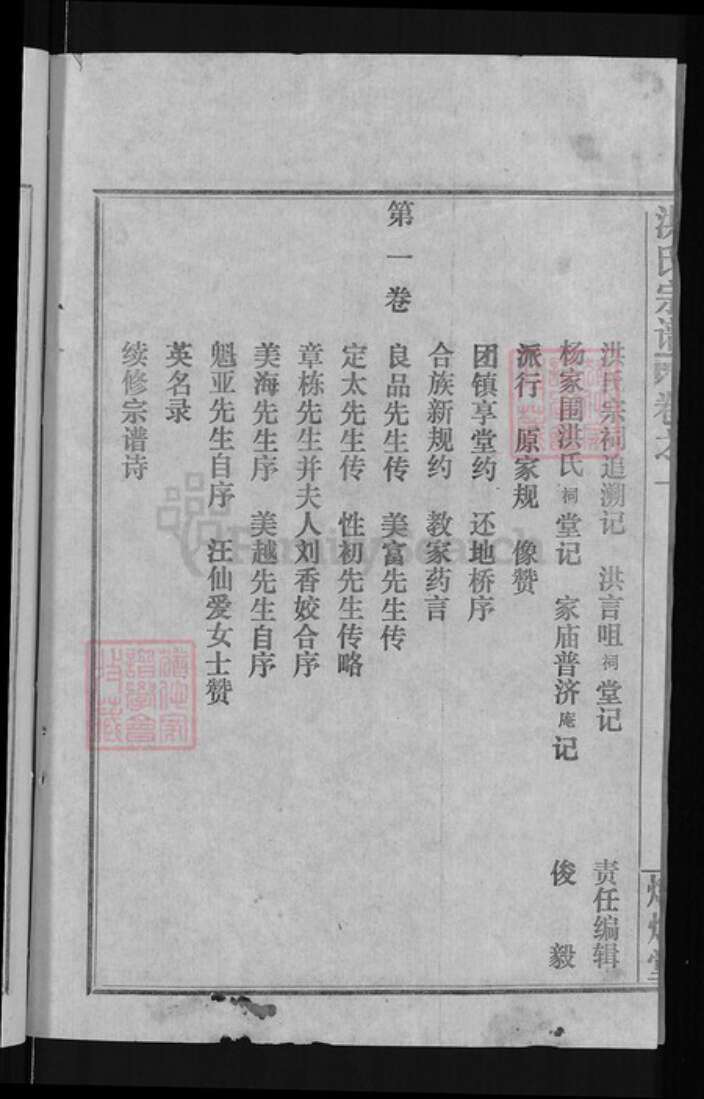 洪氏宗谱 卷之一
洪氏宗祠追溯记 洪言咀祠堂记 责任编辑
杨家围洪氏祠堂记 家庙普济庵记 俊毅
派行 原家规 像赞
团镇享堂约 还地桥序
合族新规约 教家药言
第一卷 良品先生传 美富先生传
定太先生传 性初先生传略
章栋先生并夫人刘香姣合序
美海先生序 美越先生自序
魁亚先生自序 汪仙爱女士赞
英名录
续修宗谱诗
FamilySearch